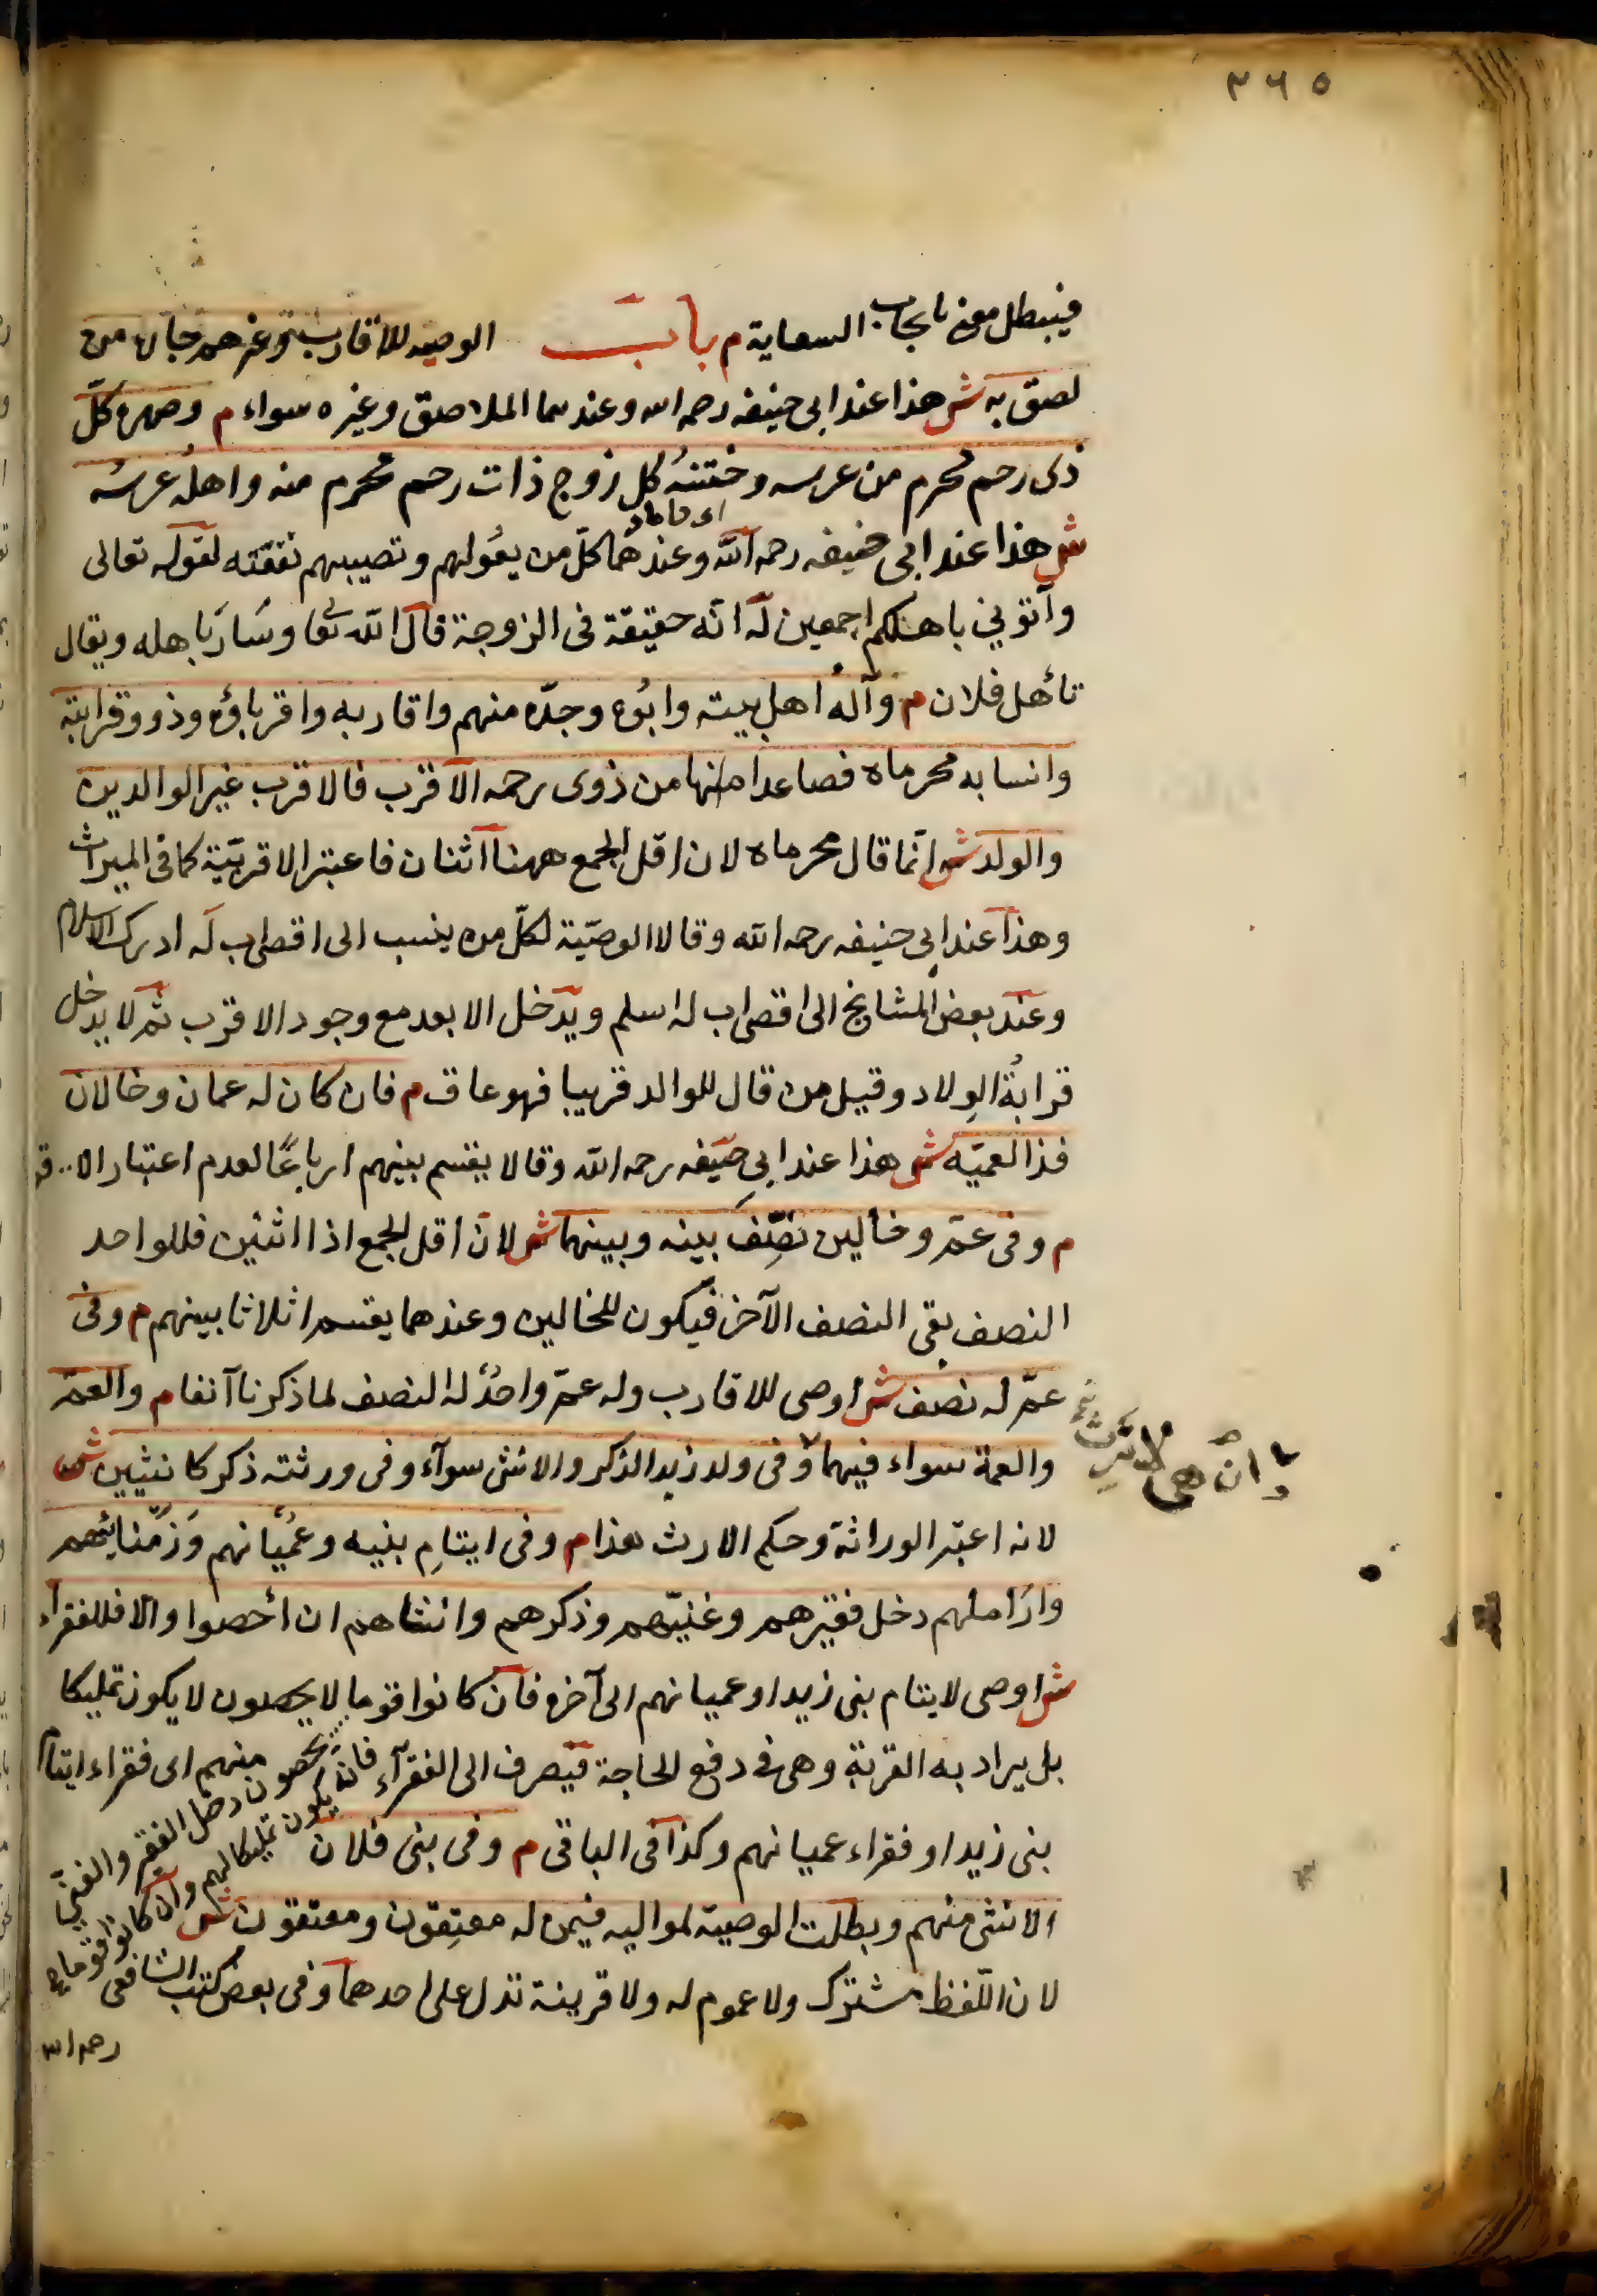 ٣٦٥
فيبطل معنى بايجاب السعاية م باب الوصية للاقارب وغيرهم جاره من
لصق به ش هذا عند ابى حنيفه رحمه الله وعندهما الملاصق وغيره سواء م وصهره كلّ
ذى رحم محرم من عرسه وختنهُ كل زوج ذات رحم محرم منه واهلُه عرسُه
اى داماد
ش هذا عند ابى حنيفه رحمه الله وعندهُما كلّ من يعُولهم وتصيبهم نفقته لقوله تعالى
وأتوني باهلكم اجمعين له انّه حقيقة فى الزوجة قال الله تعا وسَارَ باهله ويقال
تأهل فلان م وآلهُ اهل بيته وابُوه وجدّه منهم واقاربه واقرباؤه وذوو قرابته
وانسابه محرماه فصاعدا منها من ذوى رحمه الاقرب فالاقرب غير الوالدين
والولد ش انّما قال محرماه لان اقل الجمع ههنا اثنان فاعتبر الاقربيّة كما فى الميراث
وهذا عند ابى حنيفه رحمه الله وقالا الوصيّة لكلّ من ينسب الى اقصى اب له ادرك الاسلام
وعند بعض المشايخ الى اقصى اب له اسلم ويدخل الابعد مع وجود الاقرب ثم لا يدخل
قرابةُ الوِلاد وقيل من قال للوالد قريبا فهو عاق م فان كان له عمان وخالان
فذا لعميّه ش هذا عند ابى حنيفه رحمه الله وقالا يقسم بينهم ارباعًا لعدم اعتبار
م وفى عمّ وخالين نصّف بينه وبينهما ش لان اقل الجمع اذا اثنين فللواحد
النصف بقى النصف الآخر فيكون للخالين وعندهما يقسم اثلاثا بينهم م وفى
عمّ له نصف ش اوصى للاقارب وله عمّ واحدٌ له النصف لما ذكرنا آنفا م والعمّ
والعمة سواء فيهما وفى ولد زيد الذكر والانثى سوآء وفى ورثته ذكر كانثيين ش
لانه اعتبر الوراثة وحكم الارث هذا م وفى ايتامِ بنيه وعُميانهم وَزَمْناهم
وارَاملهم دخل فقيرهم وغنيّهم وذكرهم وانثاهم ان أحصوا والا فللفقرآء
ش اوصى لايتام بنى زيد او عميانهم الى آخره فان كانوا قوما لا يحصون لا يكون تمليكا
بل يراد به القربة وهى فى دفع الحاجة فيصرف الى الفقرآء منهم اى فقراء ايتام
بنى زيد او فقراء عميانهم وكذا فى الباقى م وفى بنى فلان
الانثى منهم وبطلت الوصية لمواليه فيمن له معتِقون ومعتَقون ش
لان اللفظ مشترك ولا عموم له ولا قرينة تدل على احدهما وفى بعض كتب الشافعى
رحمه الله
يحصون دخل الفقير والغنى
يكون تمليكا لهم وان كانوا قوما